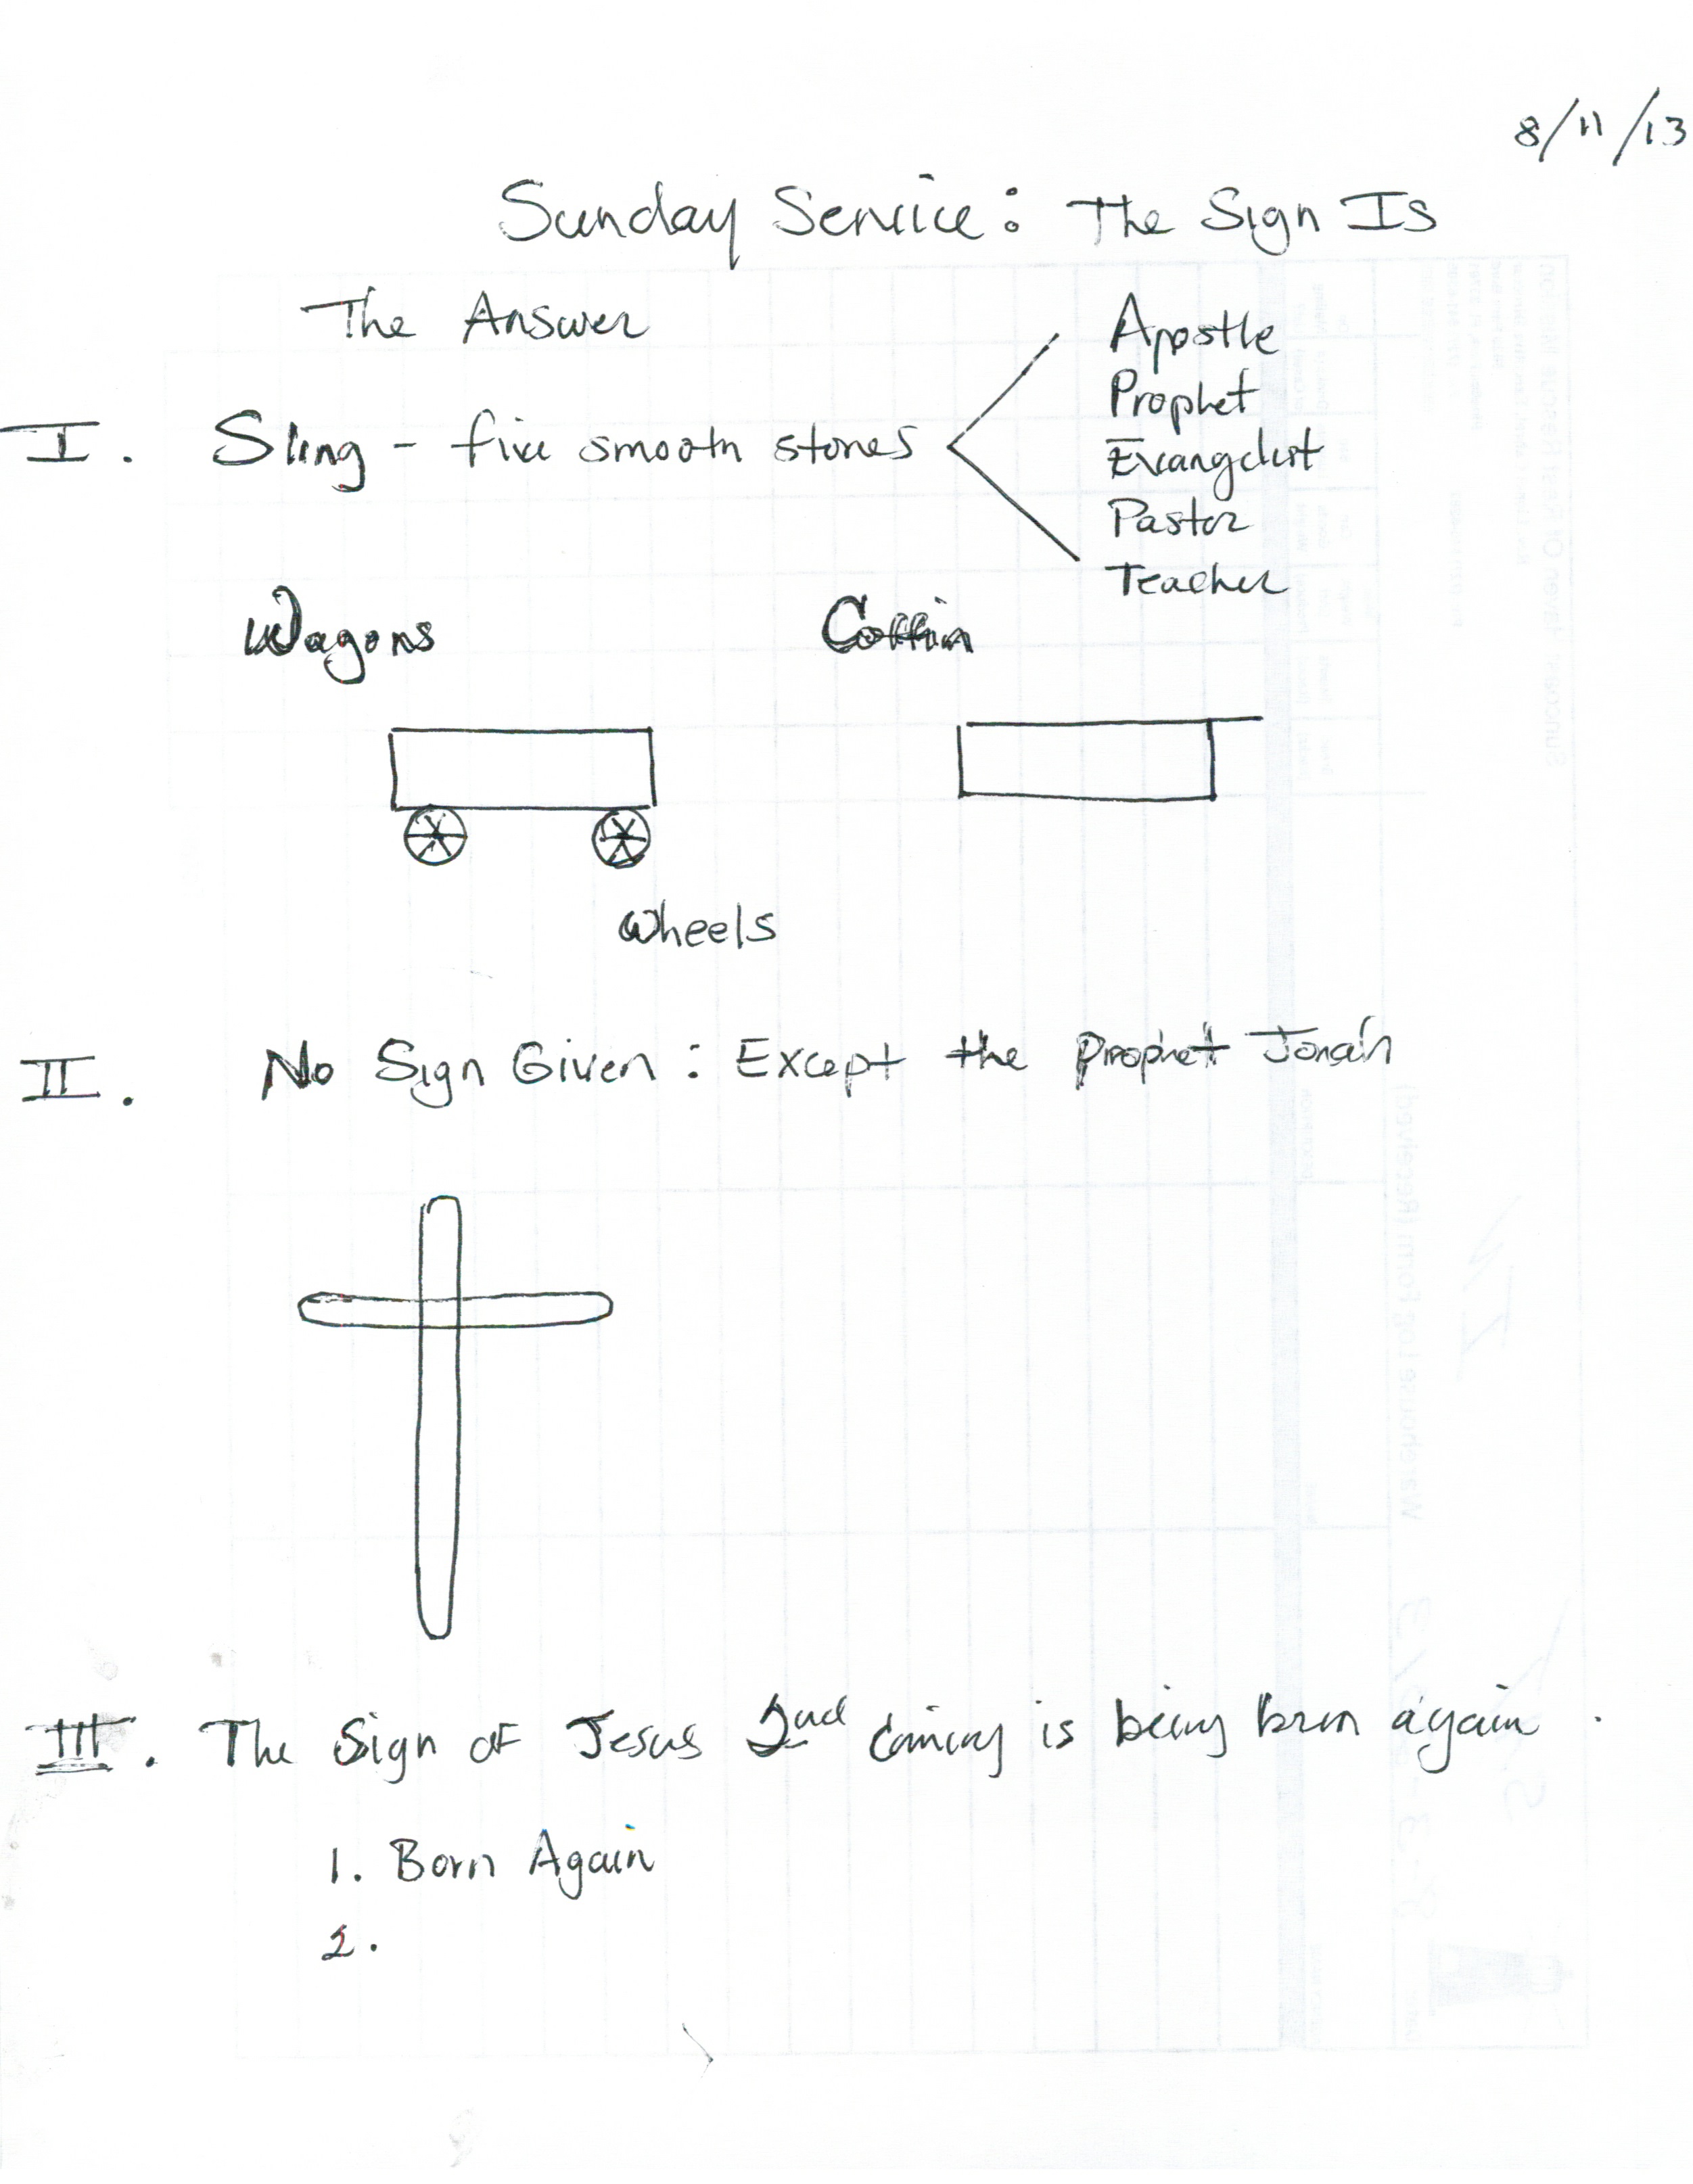 8/11/13
Sunday Service: The Sign Is
The Answer
I. Sling - five smooth stones
Apostle
Prophet
Evangelist
Pastor
Teacher
Wagons Coffin
Wheels
II. No Sign Given: Except the Prophet Jonah
III. The Sign of Jesus 2nd Coming is being born again.
1. Born Again
2.